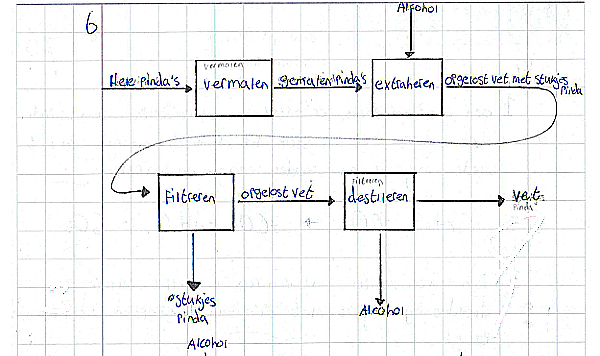 6
Alcohol
Hele pinda's
vermalen
vermalen
gemalen pinda's
extraheren
opgelost vet met stukjes
pinda
Filtreren
opgelost vet
Filtreren
destileren
vet
Pinda
stukjes
pinda
Alcohol
Alcohol